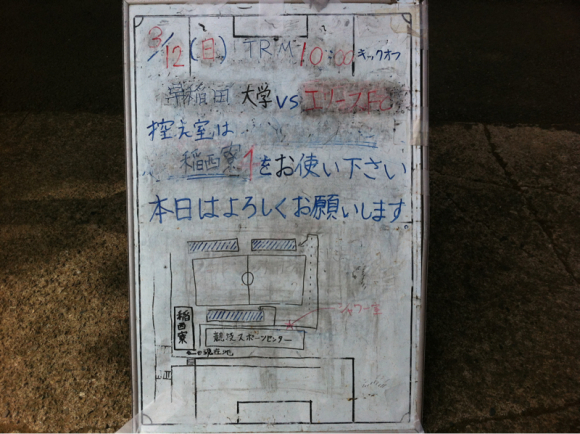 3/12(日) TRM 10:00キックオフ
早稲田大学 vs エリースFC
控え室は
稲西寮1をお使い下さい
本日はよろしくお願いします
稲西寮
競技スポーツセンター
現在地